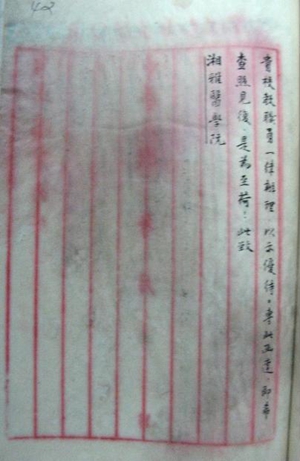 貴校教職員一律辦理，以示優待。專此函達，即希
查照見復，是為至荷！此致
湘雅醫學院
42